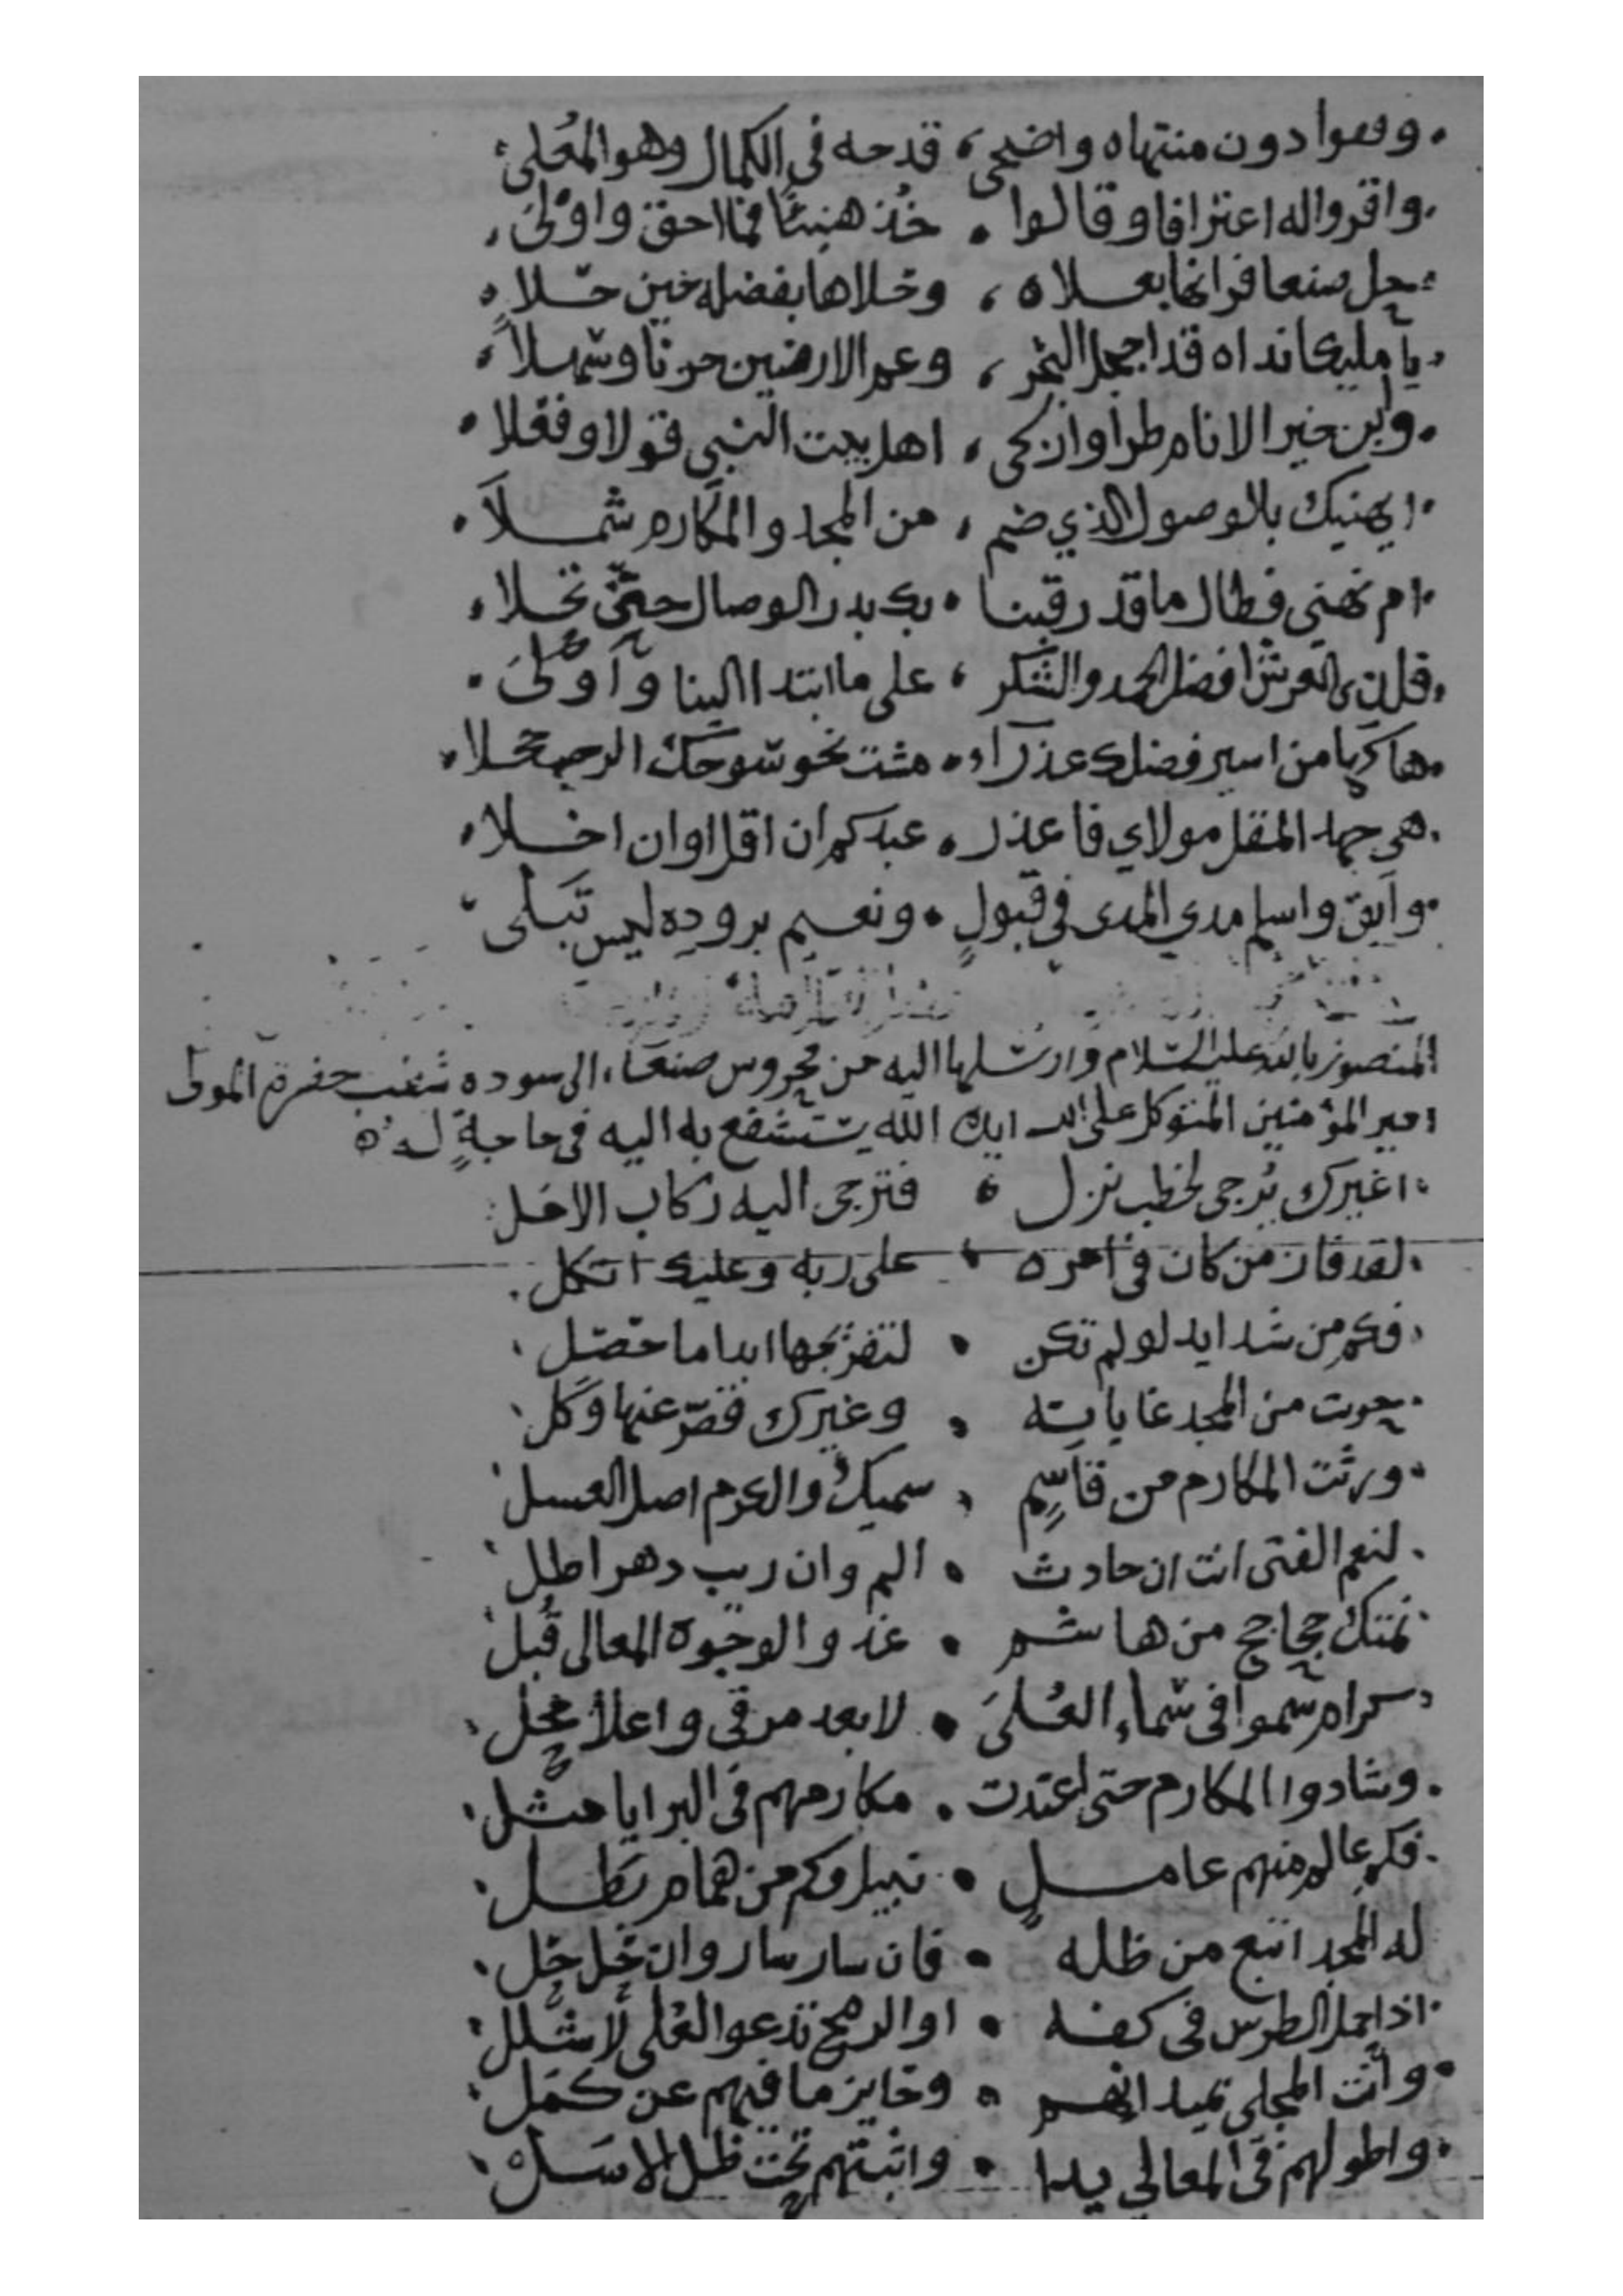 وقعوا دون منتهاه واضحى، قدحه في الكمال وهو المُعلى
واقروا له اعترافا وقالوا . خُذ هنيئًا فما احق واوْلى
حل صنعا فزانها بعلاه ، وخلاها بفضله حين حلا
يا مليكا نداه قد اخجل البحر ، وعم الارضين حزنا وسهلاً
وابن خير الانام طرا وازكى ، اهل بيت النبي قولا وفعلا
ايهنيك بالوصول الذي ضم ، من المجد والمكارم شملاَ
ام نهني فطال ما قد رقبنا . بك بدر الوصال حتى تجلا
قلذي العرش افضل الحمد والشكر ، على ما ابتدا الينا وَاَوْلىَ
هاكها من اسير فضلك عذرآء . مشت نحو سوحك الرحب خجلا
هي جهد المقل مولاي فاعذر . عبدكم ان اقل او ان اخلا
وابق واسلم مدي المدى في قبولٍ . ونعيم بروده ليس تَبلى
المنصور بالله عليه السلام وارسلها اليه من محروس صنعاء، الى سوده شغب حضرة المولى
امير المؤمنين المتوكل على الله ايده الله يستشفع به اليه في حاجةٍ له
اغيرك يُرجى لخطب نزل ، فتزجى اليه ركاب الامل
لقد فاز من كان في امره ، على ربه وعليك اتكل
فكم من شدايد لو لم تكن . لتفريجها ابدا ما حصل
حويت من المجد غاياته . وغيرك قصّر عنها وَكَل
ورثت المكارم من قاسِمٍ . سميك والكرم اصل العسل
لنعم الفتى انت ان حادث . الم وان ريب دهر اطل
نمتك جحاجح من هاشم . غدوا لوجوه المعالى قُبل
كرام سموا في سماء العُلىَ . لابعد مرقى واعلا محل
وشادوا المكارم حتى اغتدت . مكارمهم في البرايا مثل
فكم عالم منهم عاملٍ . نبيل وكم من همام بَطل
له المجد اتبع من ظله . فان سار سار وان حل حل
اذا حمل الطرس في كفه . او الرمح تدعو العُلى لا شلل
وانت المجلي بميدانهم . وحايز ما فيهم عن كمل
واطولهم في المعالي يدا . واثبتهم تحت ظل الاسل